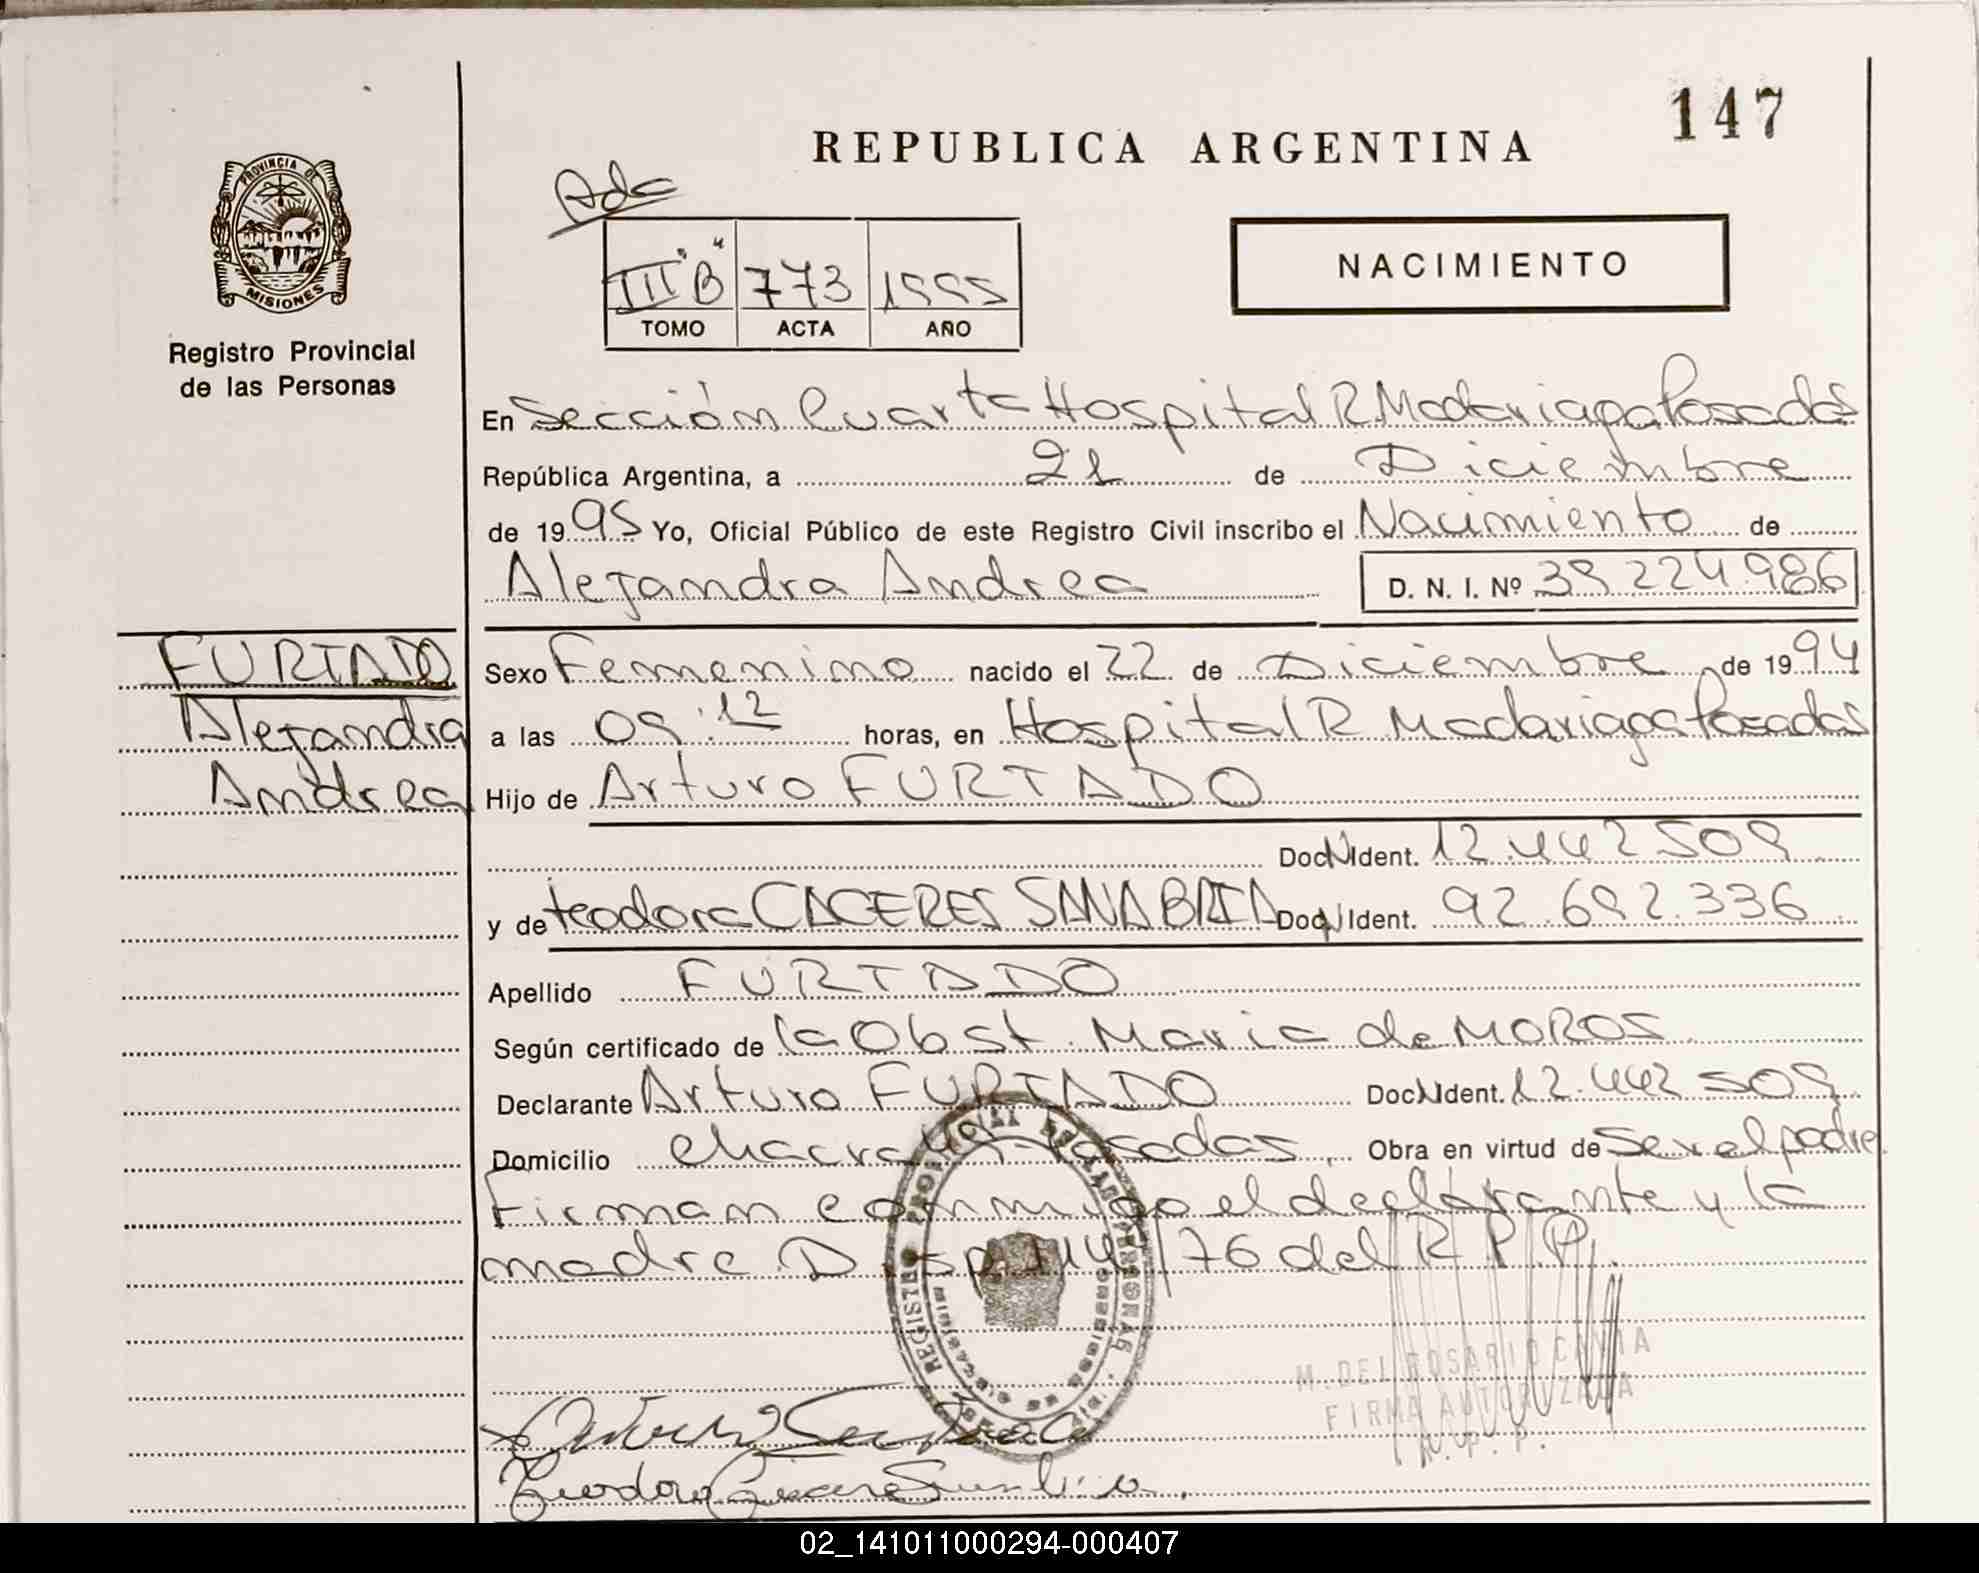 147
REPUBLICA ARGENTINA
PROVINCIA DE
MISIONES
Registro Provincial
de las Personas
Ada
III "B" 773 1995
TOMO ACTA AÑO
NACIMIENTO
En Sección Cuarta Hospital R Madariaga Posadas
República Argentina, a 21 de Diciembre
de 1995 Yo, Oficial Público de este Registro Civil inscribo el Nacimiento de
Alejandra Andrea D. N. I. Nº 39.224.986
FURTADO
Alejandra
Andrea
Sexo Femenino nacido el 22 de Diciembre de 1994
a las 09:12 horas, en Hospital R Madariaga Posadas
Hijo de Arturo FURTADO
Doc N Ident. 12.442.509
y de teodora CACERES SANABRIA Doc N Ident. 92.692.336
Apellido FURTADO
Según certificado de la Obst. Maria de MOROS
Declarante Arturo FURTADO Doc N Ident. 12.442.509
Domicilio chacra Posadas. Obra en virtud de ser el padre
Firman conmigo el declarante y la
madre. Disp 114/76 del R P P.
REGISTRO PROVINCIAL DE LAS PERSONAS
M. DEL ROSARIO
FIRMA AUTORIZADA
R. P. P.
02_141011000294-000407